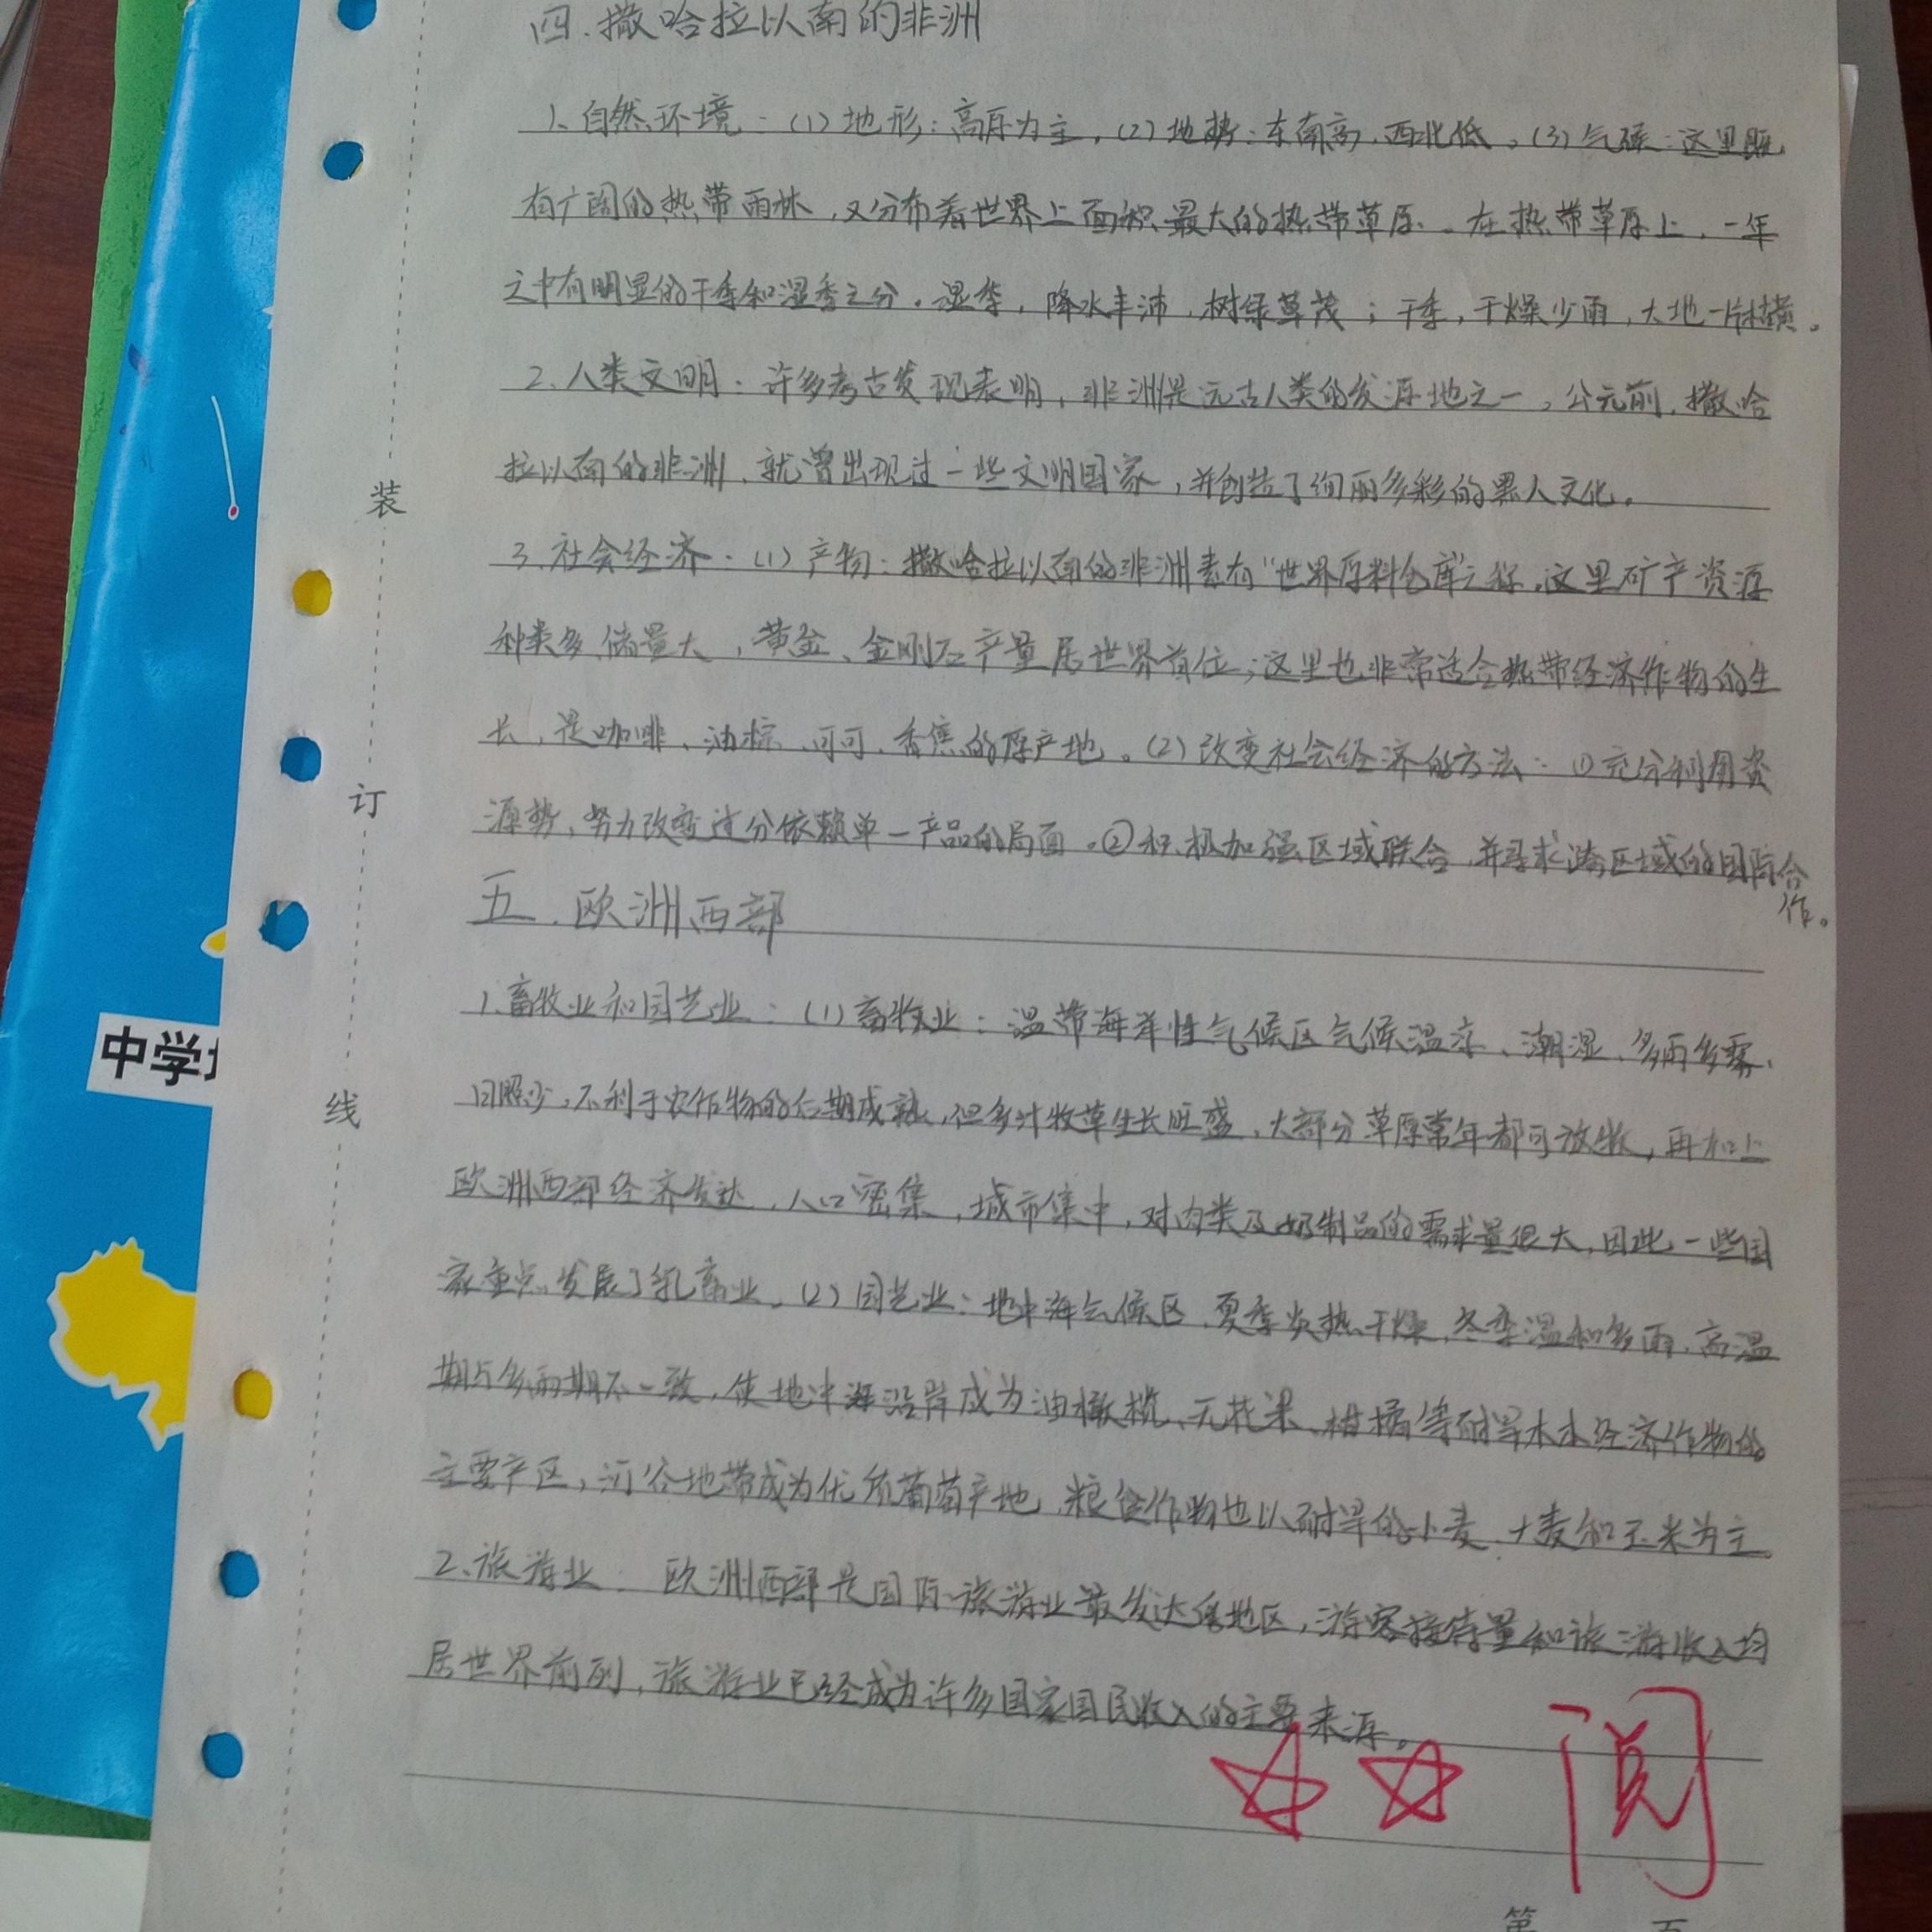 四.撒哈拉以南的非洲
1、自然环境:(1)地形:高原为主。(2)地势:东南高,西北低。(3)气候:这里既
有广阔的热带雨林,又分布着世界上面积最大的热带草原。在热带草原上,一年
之中有明显的干季和湿季之分。湿季,降水丰沛,树绿草茂;干季,干燥少雨,大地一片
2、人类文明:许多考古发现表明,非洲是远古人类的发源地之一,公元前,撒哈
拉以南的非洲,就曾出现过一些文明国家,并创造了绚丽多彩的黑人文化。
3、社会经济:(1)产物:撒哈拉以南的非洲素有“世界原料仓库”之称,这里矿产资源
种类多、储量大,黄金、金刚石产量居世界首位;这里也非常适合热带经济作物的生
长,是咖啡、油棕、可可、香蕉的原产地。(2)改变社会经济的方法:①充分利用资
源势,努力改变过分依赖单一产品的局面。②积极加强区域联合,并寻求跨区域的国际合
作。
五.欧洲西部
1、畜牧业和园艺业:(1)畜牧业:温带海洋性气候区气候温凉、潮湿、多雨多雾、
日照少,不利于农作物的后期成熟,但多汁牧草生长旺盛,大部分草原常年都可放牧,再加上
欧洲西部经济发达,人口密集,城市集中,对肉类及奶制品的需求量很大,因此一些国
家重点发展了乳畜业。(2)园艺业:地中海气候区,夏季炎热干燥,冬季温和多雨,高温
期与多雨期不一致,使地中海沿岸成为油橄榄、无花果、柑橘等耐旱木本经济作物的
主要产区,河谷地带成为优质葡萄产地,粮食作物也以耐旱的小麦、大麦和玉米为主。
2、旅游业:欧洲西部是国际旅游业最发达的地区,游客接待量和旅游收入均
居世界前列,旅游业已经成为许多国家国民收入的主要来源。
阅
装
订
线
中学
第 页